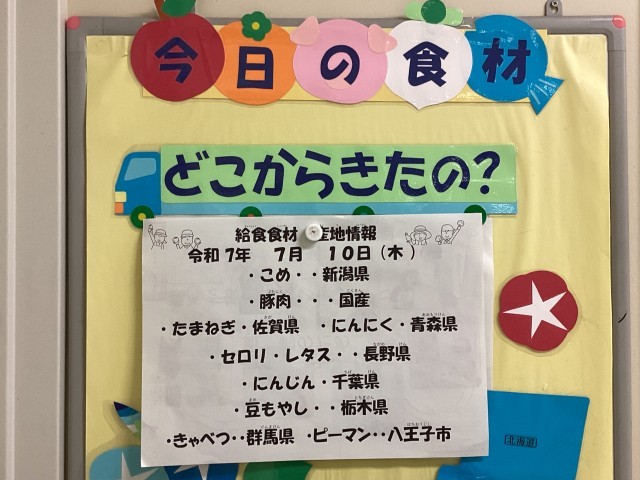 今日の食材
どこからきたの?
給食食材 産地情報
令和7年 7月 10日(木)
・こめ・・新潟県
・豚肉・・・国産
・たまねぎ・佐賀県 ・にんにく・青森県
・セロリ・レタス・・長野県
・にんじん・千葉県
・豆もやし・・栃木県
・きゃべつ・・群馬県 ・ピーマン・・八王子市
北海道